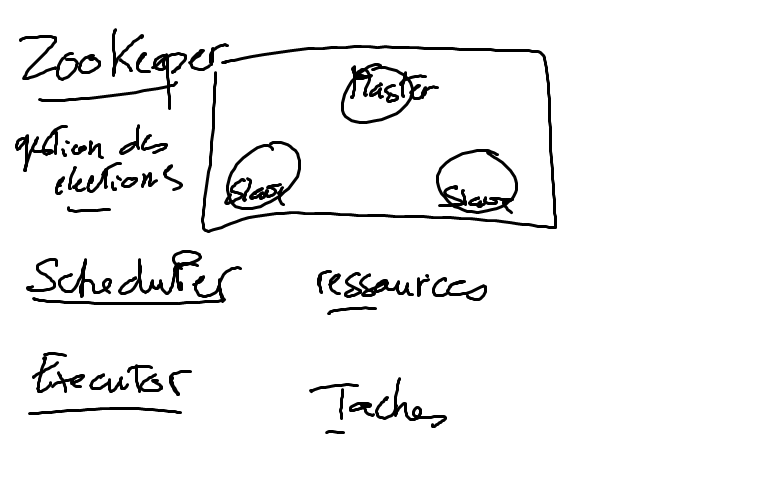 ZooKeeper
Master
gestion des
elections
Slave
Slave
Scheduler
ressources
Executor
Taches